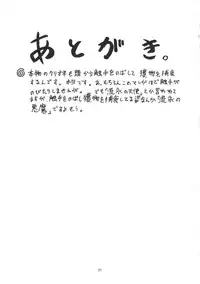 あとがき。
◎本物のクリオネも頭から触手をのばして獲物を捕食
するんです。ホントです。あ、もちろんこのマンガほど触手が
のびたりしませんが。でも「流氷の天使」とか言われて
ますが、触手をのばし獲物を捕食してる姿なんか「流氷の
悪魔」ですよもう。